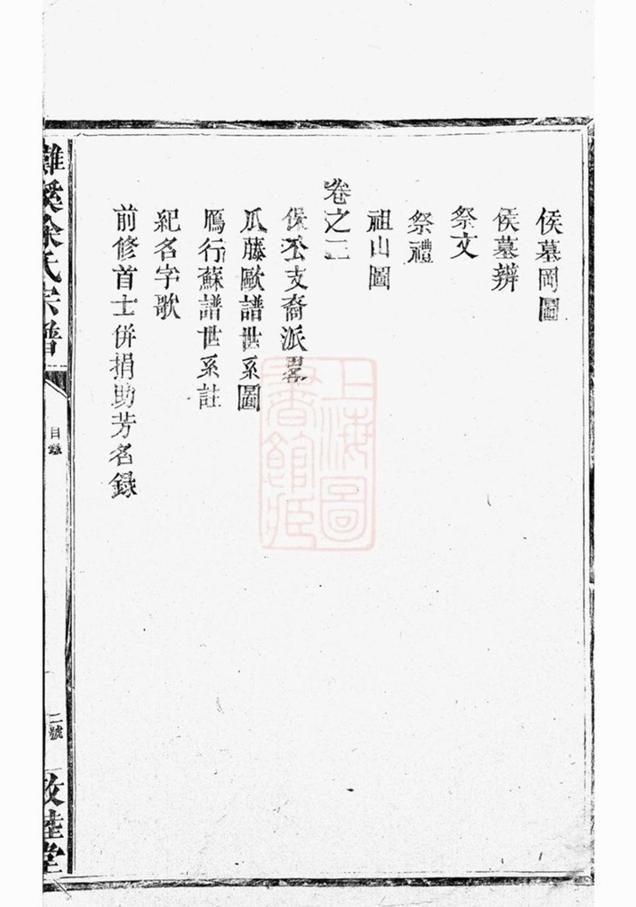 侯墓岡圖
侯墓辨
祭文
祭禮
祖山圖
卷之二
保公支裔派畧
瓜藤歐譜世系圖
鴈行蘇譜世系註
紀名字歌
前修首士併捐助芳名錄
灘溪余氏宗譜
目錄
二號
敦睦堂
上海圖書館藏